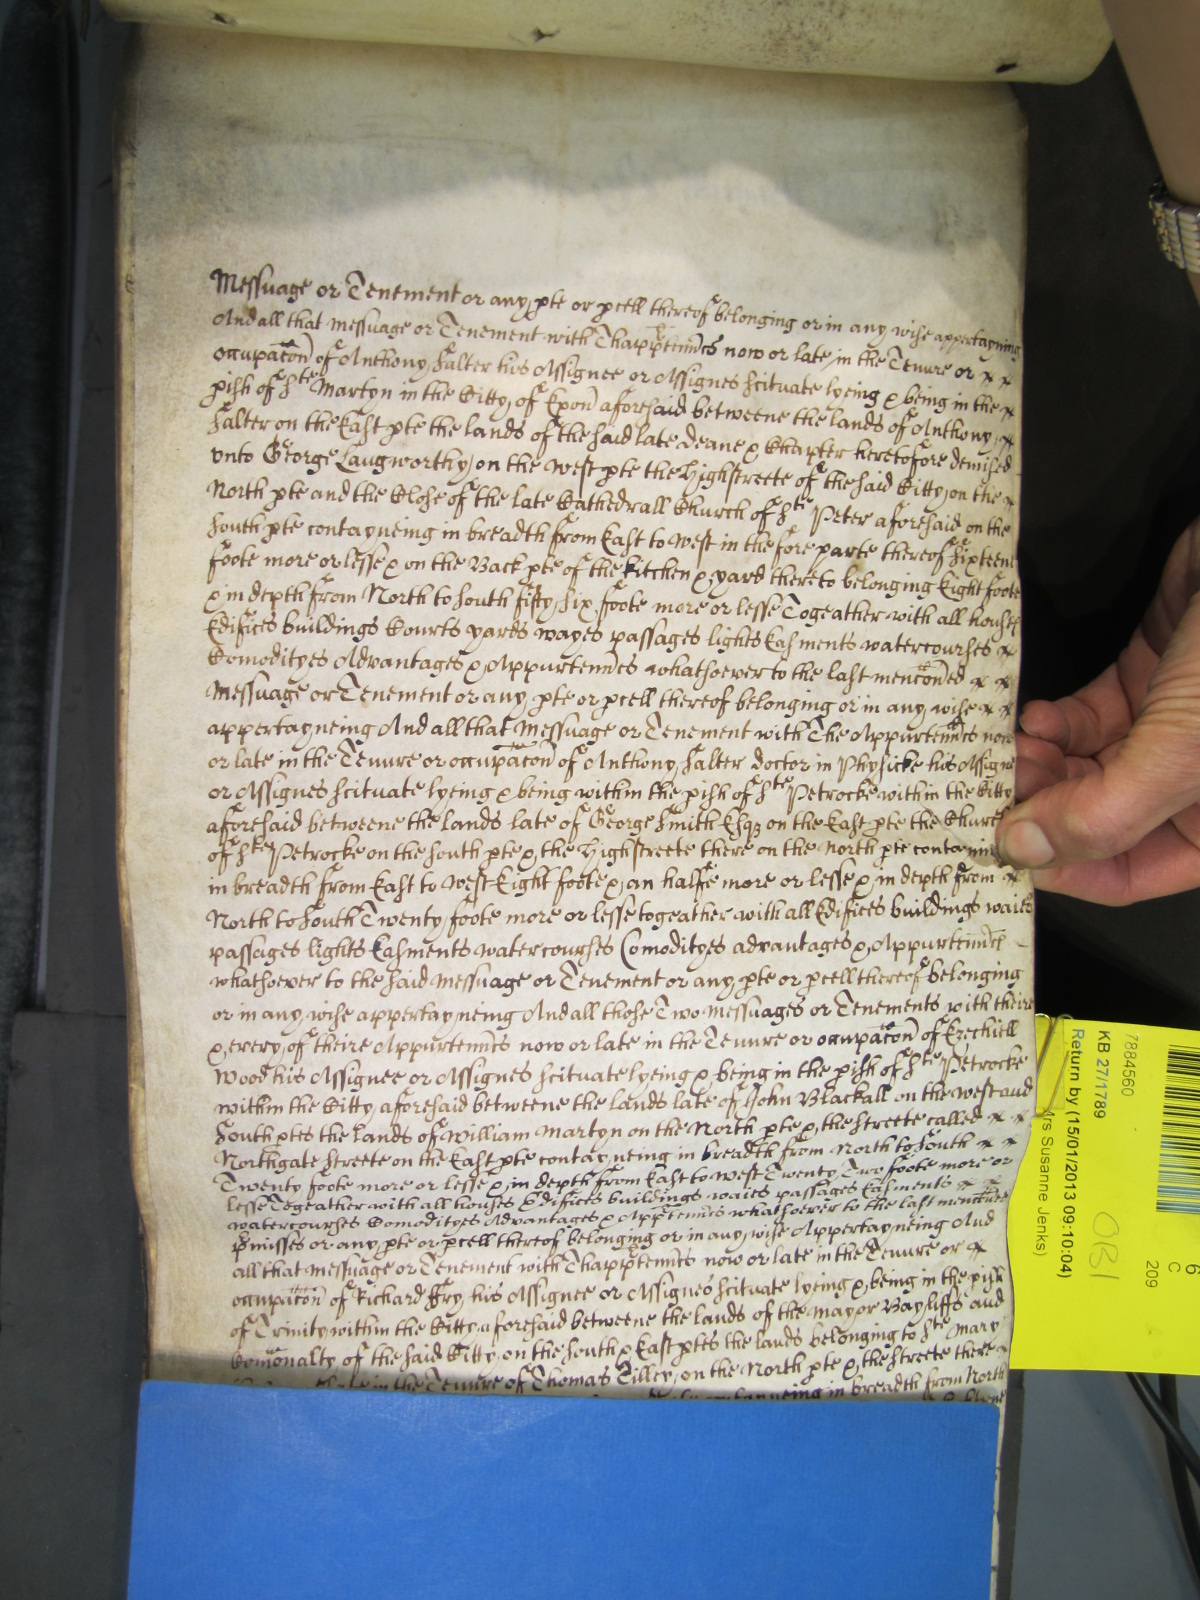 Messuage or Tenement or any pte or pcell thereof belonging or in any wise appertayning
And all that Messuage or Tenement with Thapptennces now or late in the Tenure or
occupacon of Anthony Salter his Assignee or Assignes scituate lyeing & being in the
pish of Ste Martyn in the Citty of Exon aforesaid betweene the lands of Anthony
Salter on the East pte the lands of the said late Deane & Chapter heretofore demised
vnto George Langworthy on the West pte the Highstreete of the said Citty on the
North pte and the Close of the late Cathedrall Church of Ste Peter aforesaid on the
South pte contayneing in breadth from East to West in the fore parte thereof Sixteene
foote more or lesse & on the Back pte of the kitchen & yard thereto belonging Eight foote
& in depth from North to South fifty six foote more or lesse Togeather with all houses
Edifices buildings Courts yards wayes passages lights Easments watercourses
Comodityes Advantages & Appurtennces whatsoever to the last menconed
Messuage or Tenement or any pte or pcell thereof belonging or in any wise
appertayneing And all that Messuage or Tenement with The Appurtennces now
or late in the Tenure or occupacon of Anthony Salter doctor in Phisicke his Assignee
or Assignes scituate lyeing & being within the pish of Ste Petrocke within the Citty
aforesaid betweene the lands late of George Smith Esqz on the East pte the Church
of Ste Petrocke on the South pte & the Highstreete there on the North pte contayning
in breadth from East to West Eight foote & an halfe more or lesse & in depth from
North to South Twenty foote more or lesse togeather with all Edifices buildings waies
passages lights Easments watercourses Comodityes advantages & Appurtennces
whatsoever to the said Messuage or Tenement or any pte or pcell thereof belonging
or in any wise appertayneing And all those Two Messuages or Tenements with theire
& every of theire Appurtennces now or late in the Tenure or occupacon of Ezechiell
Wood his Assignee or Assignes scituate lyeing & being in the pish of Ste Petrocke
within the Citty aforesaid betweene the lands late of John Blackall on the West and
South ptes the lands of William Martyn on the North pte & the streete called
Northgate streete on the East pte contayneing in breadth from North to South
Twenty foote more or lesse & in depth from East to West Twenty Two foote more or
lesse Togeather with all houses Edifices buildings waies passages Easments
watercourses Comodityes Advantages & Apptennces whatsoever to the last menconed
pmisses or any pte or pcell thereof belonging or in any wise Appertayneing And
all that Messuage or Tenement with Thapptennces now or late in the Tenure or
occupacon of Richard Fry his Assignee or Assignes scituate lyeing & being in the pish
of Trinity within the Citty aforesaid betweene the lands of the mayor Bayliffs and
Comonalty of the said Citty on the South & East ptes the lands belonging to Ste Mary
in the Tenure of Thomas Tilley on the North pte & the streete there
contayneing in breadth from North
7884560
KB 27/1789
Return by (15/01/2013 09:10:04)
Mrs Susanne Jenks)
OB1
6
C
209